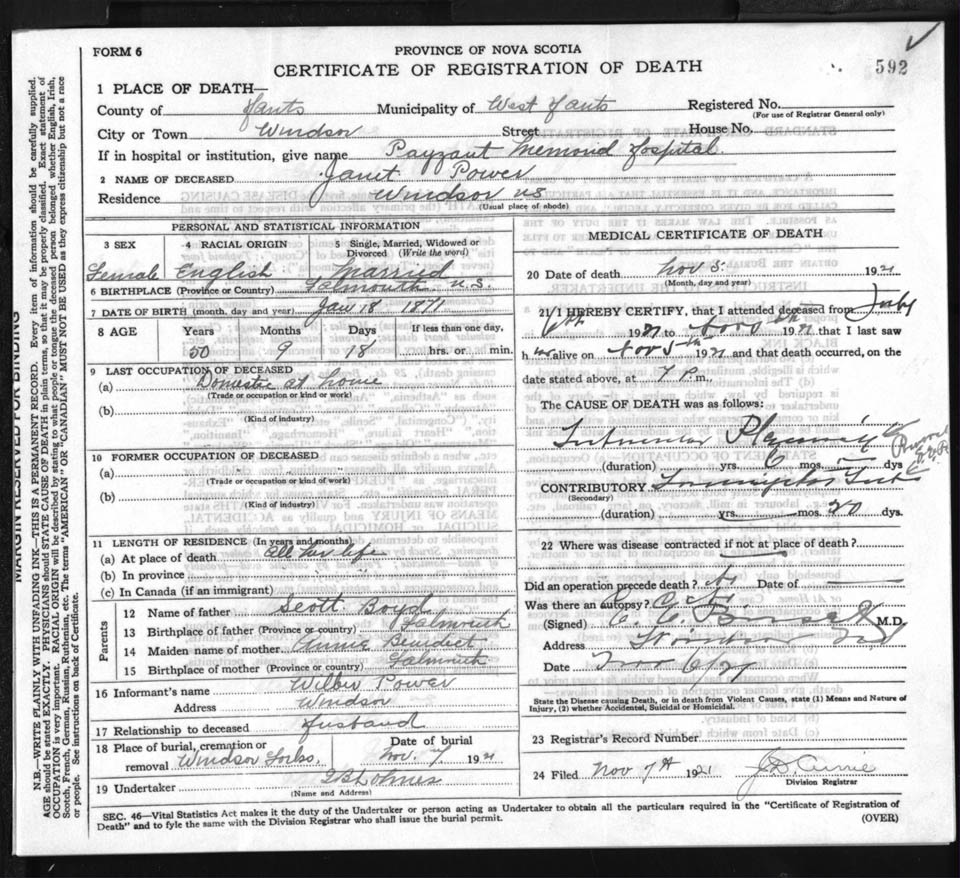 FORM 6
PROVINCE OF NOVA SCOTIA
CERTIFICATE OF REGISTRATION OF DEATH
592
1 PLACE OF DEATH—
County of Hants Municipality of West Hants Registered No.
(For use of Registrar General only)
City or Town Windsor Street House No.
If in hospital or institution, give name Payzant Memorial Hospital
2 NAME OF DECEASED Janet Power
Residence Windsor N.S
(Usual place of abode)
PERSONAL AND STATISTICAL INFORMATION
3 SEX 4 RACIAL ORIGIN 5 Single, Married, Widowed or Divorced (Write the word)
Female English Married
6 BIRTHPLACE (Province or Country) Falmouth N.S.
7 DATE OF BIRTH (month, day and year) Jan 18 1871
8 AGE Years Months Days If less than one day,
50 9 18 hrs. or min.
9 LAST OCCUPATION OF DECEASED
(a) Domestic at home
(Trade or occupation or kind or work)
(b)
(Kind of industry)
10 FORMER OCCUPATION OF DECEASED
(a)
(Trade or occupation or kind or work)
(b)
(Kind of industry)
11 LENGTH OF RESIDENCE (In years and months)
(a) At place of death All her life
(b) In province " " "
(c) In Canada (if an immigrant)
Parents
12 Name of father Scott Boyd
13 Birthplace of father (Province or country) Falmouth
14 Maiden name of mother Annie Benedict
15 Birthplace of mother (Province or country) Falmouth
16 Informant's name Wilbur Power
Address Windsor
17 Relationship to deceased Husband
18 Place of burial, cremation or removal Windsor Date of burial Nov. 7 1921
19 Undertaker Holmes
(Name and Address)
MEDICAL CERTIFICATE OF DEATH
20 Date of death Nov 5 1921
(Month, day and year)
21 I HEREBY CERTIFY, that I attended deceased from
6th 1921 to Nov 5th 1921 that I last saw
h er alive on Nov 5th 1921 and that death occurred, on the
date stated above, at 7 P. m.
The CAUSE OF DEATH was as follows:
(duration) yrs. 6 mos. — dys
CONTRIBUTORY
(Secondary)
(duration) yrs. — mos. 20 dys.
22 Where was disease contracted if not at place of death?
Did an operation precede death? No Date of
Was there an autopsy? No
(Signed) M.D.
Address Windsor N.S
Date Nov 6/21
State the Disease causing Death, or in death from Violent Causes, state (1) Means and Nature of Injury, (2) whether Accidental, Suicidal or Homicidal.
23 Registrar's Record Number
24 Filed Nov 7th 1921
Division Registrar
SEC. 46—Vital Statistics Act makes it the duty of the Undertaker or person acting as Undertaker to obtain all the particulars required in the "Certificate of Registration of
Death" and to fyle the same with the Division Registrar who shall issue the burial permit.
(OVER)
MARGIN RESERVED FOR BINDING
N.B.—WRITE PLAINLY WITH UNFADING INK—THIS IS A PERMANENT RECORD. Every item of information should be carefully supplied.
AGE should be stated EXACTLY. PHYSICIANS should STATE CAUSE OF DEATH in plain terms, so that it may be properly classified. Exact statement of
OCCUPATION is very important. RACIAL ORIGIN will be described by stating to what people or tongue the deceased person belonged whether English, Irish,
Scotch, French, German, Russian, Ruthenian, etc. The terms "AMERICAN" OR "CANADIAN" MUST NOT BE USED as they express citizenship but not a race
or people. See instructions on back of Certificate.